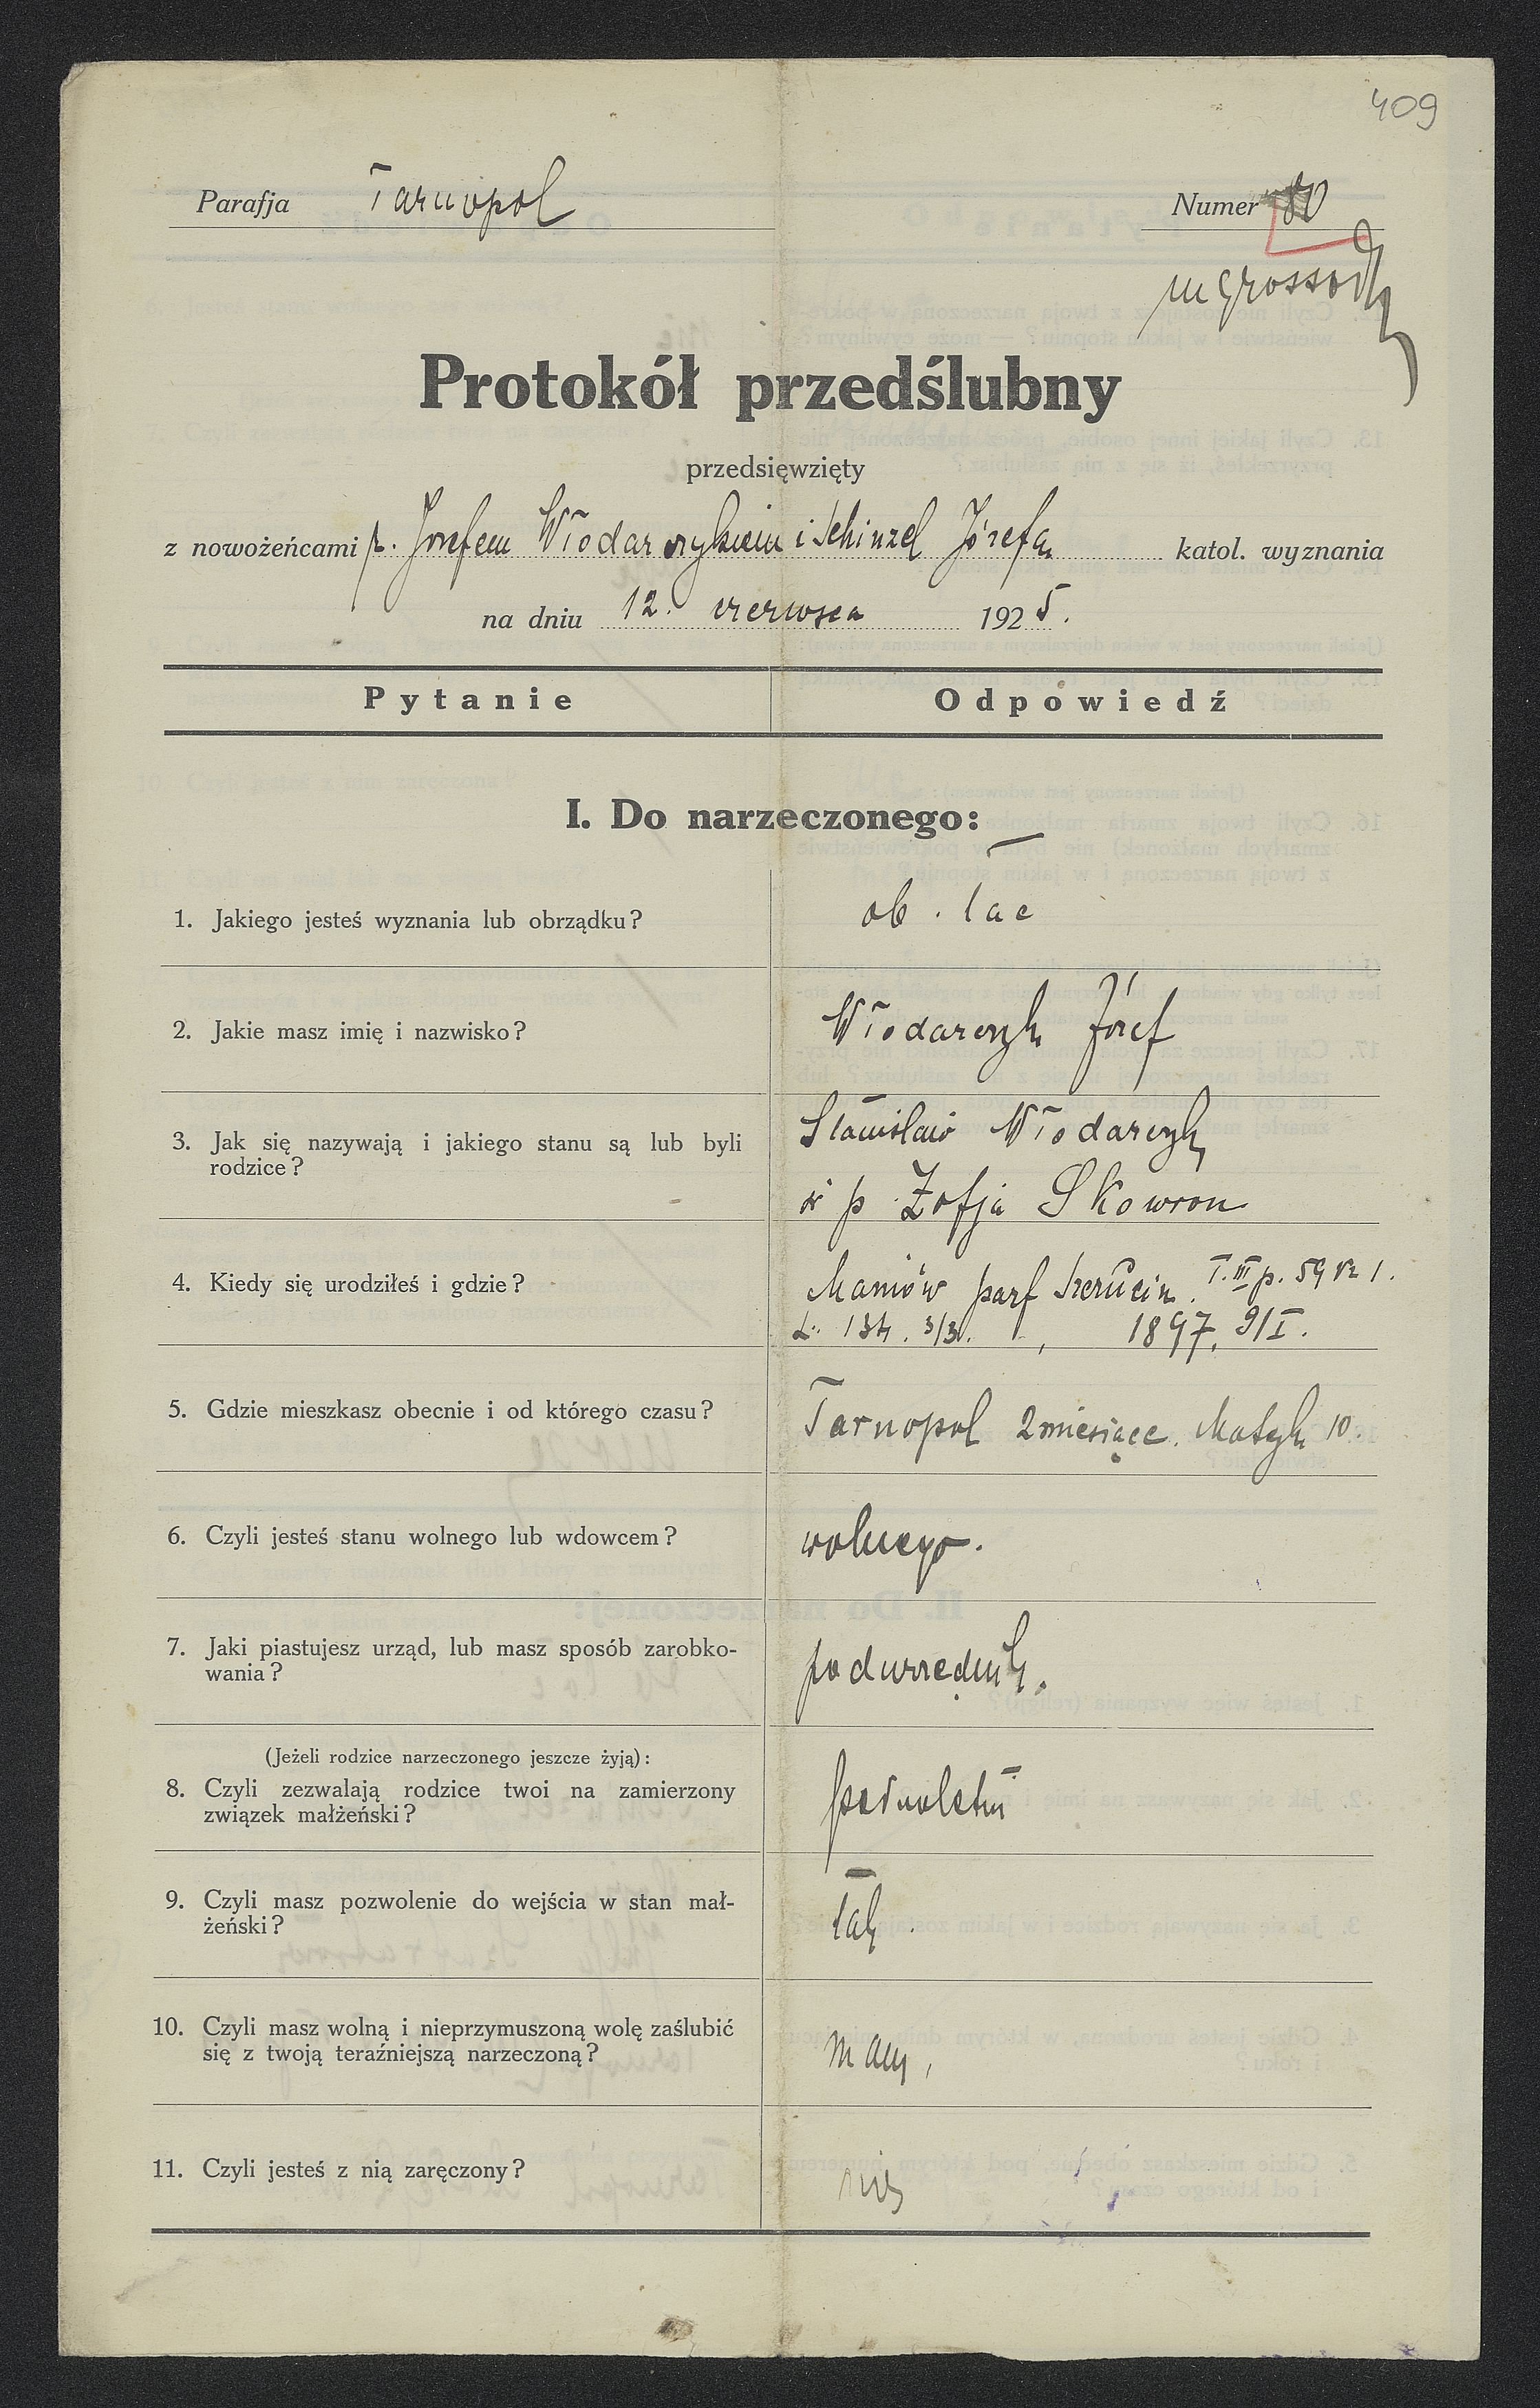 409
Parafja Tarnopol
Numer 80
ingrossov
Protokół przedślubny
przedsięwzięty
z nowożeńcami p. Józefem Włodarczykiem i Schinzel Józefa katol. wyznania
na dniu 12. czerwsca 1925.
Pytanie Odpowiedź
I. Do narzeczonego:
1. Jakiego jesteś wyznania lub obrządku? ob. łac
2. Jakie masz imię i nazwisko? Włodarczyk Józef
3. Jak się nazywają i jakiego stanu są lub byli Stanisław Włodarczyk
rodzice?
ś p Zofja Skowron
4. Kiedy się urodziłeś i gdzie? Maniów parf Szczucin. T. III p. 59 Nr 1.
L. 134. 3/3. 1897. 9/I.
5. Gdzie mieszkasz obecnie i od którego czasu? Tarnopol 2 miesiące. Matejk 10.
6. Czyli jesteś stanu wolnego lub wdowcem? wolnego.
7. Jaki piastujesz urząd, lub masz sposób zarobko-
wania? podurzędnik.
(Jeżeli rodzice narzeczonego jeszcze żyją):
8. Czyli zezwalają rodzice twoi na zamierzony
związek małżeński? pełnoletni
9. Czyli masz pozwolenie do wejścia w stan mał-
żeński? tak
10. Czyli masz wolną i nieprzymuszoną wolę zaślubić
się z twoją teraźniejszą narzeczoną? mam,
11. Czyli jesteś z nią zaręczony? nie